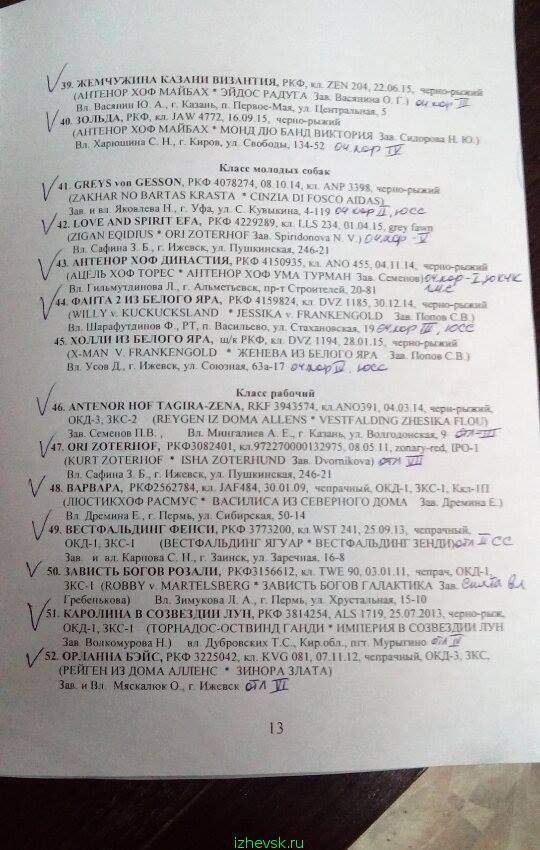 39. ЖЕМЧУЖИНА КАЗАНИ ВИЗАНТИЯ, РКФ, кл. ZEN 204, 22.06.15, черно-рыжий
(АНТЕНОР ХОФ МАЙБАХ * ЭЙДОС РАДУГА Зав. Васянина О. Г.) оч.пер III
Вл. Васянин Ю. А., г. Казань, п. Первое-Мая, ул. Центральная, 5
40. ЗОЛЬДА, РКФ, кл. JAW 4772, 16.09.15, черно-рыжий
(АНТЕНОР ХОФ МАЙБАХ * МОНД ДЮ БАНД ВИКТОРИЯ Зав. Сидорова Н. Ю.)
Вл. Харюшина С. Н., г. Киров, ул. Свободы, 134-52 оч.пер IV
Класс молодых собак
41. GREYS von GESSON, РКФ 4078274, 08.10.14, кл. ANP 3398, черно-рыжий
(ZAKHAR NO BARTAS KRASTA * CINZIA DI FOSCO AIDAS)
Зав. и вл. Яковлева Н., г. Уфа, ул. С. Кувыкина, 4-119 оч.кор II, юсс
42. LOVE AND SPIRIT EFA, РКФ 4229289, кл. LLS 234, 01.04.15, grey fawn
(ZIGAN EQIDIUS * ORI ZOTERHOF Зав. Spiridonova N. V.) оч.кор - V
Вл. Сафина З. Б., г. Ижевск, ул. Пушкинская, 246-21
43. АНТЕНОР ХОФ ДИНАСТИЯ, РКФ 4150935, кл. ANO 455, 04.11.14, черно-рыжий
(АЦЕЛЬ ХОФ ТОРЕС * АНТЕНОР ХОФ УМА ТУРМАН Зав. Семенов) оч.кор-I, юКЧК
Вл. Гильмутдинова Л., г. Альметьевск, пр-т Строителей, 20-81
44. ФАНТА 2 ИЗ БЕЛОГО ЯРА, РКФ 4159824, кл. DVZ 1185, 30.12.14, черно-рыжий
(WILLY v. KUCKUCKSLAND * JESSIKA v. FRANKENGOLD Зав. Попов С.В.)
Вл. Шарафутдинов Ф., РТ, п. Васильево, ул. Стахановская, 19 оч.кор III, юсс
45. ХОЛЛИ ИЗ БЕЛОГО ЯРА, щ/к РКФ, кл. DVZ 1194, 28.01.15, черно-рыжий
(X-MAN V. FRANKENGOLD * ЖЕНЕВА ИЗ БЕЛОГО ЯРА Зав. Попов С.В.)
Вл. Усов Д., г. Ижевск, ул. Союзная, 63а-17 оч.кор IV, юсс
Класс рабочий
46. ANTENOR HOF TAGIRA-ZENA, RKF 3943574, кл.ANO391, 04.03.14, черн-рыжий,
ОКД-3, ЗКС-2 (REYGEN IZ DOMA ALLENS * VESTFALDING ZHESIKA FLOU)
Зав. Семенов П.В. , Вл. Мингалиев А. Е., г. Казань, ул. Волгодонская, 9 отл-III
47. ORI ZOTERHOF, РКФ3082401, кл.972270000132975, 08.05.11, zonary-red, IPO-1
(KURT ZOTERHOF * ISHA ZOTERHUND Зав. Dvornikova) отл VII
Вл. Сафина З. Б., г. Ижевск, ул. Пушкинская, 246-21
48. ВАРВАРА, РКФ2562784, кл. JAF484, 30.01.09, чепрачный, ОКД-1, ЗКС-1, Ккл-1П
(ЛЮСТИКХОФ РАСМУС * ВАСИЛИСА ИЗ СЕВЕРНОГО ДОМА Зав. Дремина Е.)
Вл. Дремина Е., г. Пермь, ул. Сибирская, 50-14
49. ВЕСТФАЛЬДИНГ ФЕНСИ, РКФ 3773200, кл. WST 241, 25.09.13, чепрачный,
ОКД-1, ЗКС-1 (ВЕСТФАЛЬДИНГ ЯГУАР * ВЕСТФАЛЬДИНГ ЗЕНДИ) отл II СС
Зав. и вл. Карпова С. Н., г. Заинск, ул. Заречная, 16-8
50. ЗАВИСТЬ БОГОВ РОЗАЛИ, РКФ3156612, кл. TWE 90, 03.01.11, чепрач, ОКД-1,
ЗКС-1 (ROBBY v. MARTELSBERG * ЗАВИСТЬ БОГОВ ГАЛАКТИКА Зав. снята вл
Гребенькова) Вл. Зимукова Л. А., г. Пермь, ул. Хрустальная, 15-10
51. КАРОЛИНА В СОЗВЕЗДИИ ЛУН, РКФ 3814254, ALS 1719, 25.07.2013, черно-рыж,
ОКД-1, ЗКС-1 (ТОРНАДОС-ОСТВИНД ГАНДИ * ИМПЕРИЯ В СОЗВЕЗДИИ ЛУН
Зав. Волкоморова Н.) вл. Дубровских Т.С., Кир.обл., пгт. Мурыгино отл IV
52. ОРЛАННА БЭЙС, РКФ 3225042, кл. KVG 081, 07.11.12, чепрачный, ОКД-3, ЗКС,
(РЕЙГЕН ИЗ ДОМА АЛЛЕНС * ЗИНОРА ЗЛАТА)
Зав. и Вл. Мяскалюк О., г. Ижевск отл VI
13
izhevsk.ru